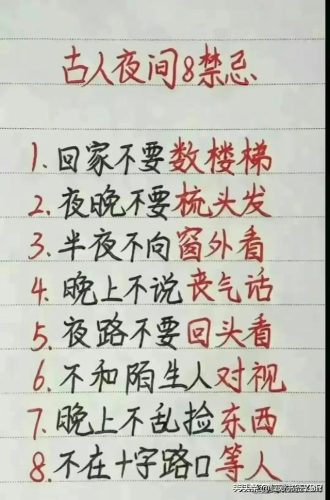 古人夜间8禁忌
1.回家不要数楼梯
2.夜晚不要梳头发
3.半夜不向窗外看
4.晚上不说丧气话
5.夜路不要回头看
6.不和陌生人对视
7.晚上不乱捡东西
8.不在十字路口等人